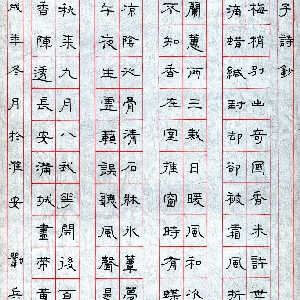 子詩鈔
梅梢別出奇國香未許世
滴蜡緘封却卻被霜風折
蘭蕙兩三栽日暖風和次
不知香在室推窗時有蝶
涼陰沁骨清石牀冰簟夢
午夜生虛籟誤聽風聲是
秋來九月八我花開後百
香陣透長安滿城盡帶黃
戌年冬月於淮安 劉兵